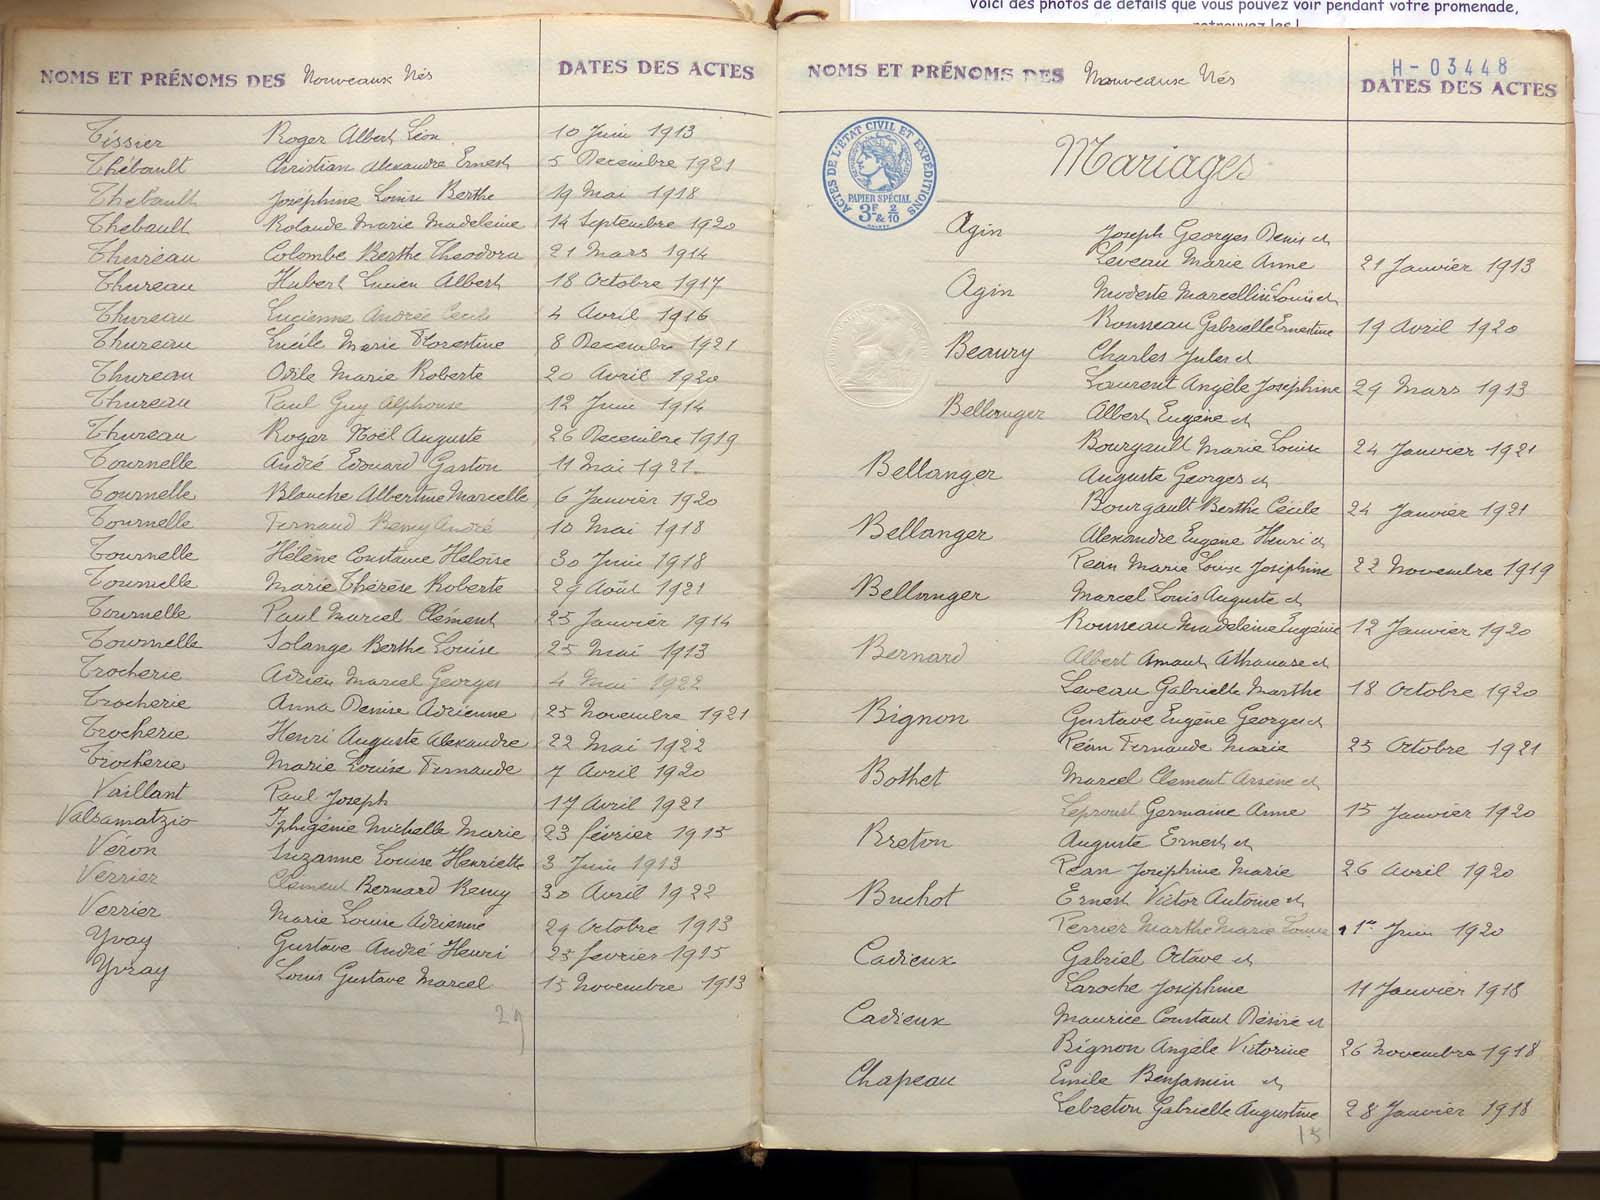 Voici des photos de détails que vous pouvez voir pendant votre promenade,
retrouvez les !
NOMS ET PRÉNOMS DES Nouveaux Nés DATES DES ACTES
Tissier Roger Albert Léon 10 Juin 1913
Thébault Christian Alexandre Ernest 5 Decembre 1921
Thebault Joséphine Louise Berthe 19 Mai 1918
Thebault Rolande Marie Madeleine 14 Septembre 1920
Thureau Colombe Berthe Theodora 21 Mars 1914
Thureau Hubert Lucien Albert 18 Octobre 1917
Thureau Lucienne Andrée Cecile 4 Avril 1916
Thureau Lucile Marie Florestine 8 Decembre 1921
Thureau Odile Marie Roberte 20 Avril 1920
Thureau Paul Guy Alphonse 12 Juin 1914
Thureau Roger Noël Auguste 26 Decembre 1919
Tournelle André Edouard Gaston 11 Mai 1921
Tournelle Blanche Albertine Marcelle 6 Janvier 1920
Tournelle Fernand Remy André 10 Mai 1918
Tournelle Hélène Constance Heloise 30 Juin 1918
Tournelle Marie Thérèse Roberte 29 Août 1921
Tournelle Paul Marcel Clément 25 Janvier 1914
Tournelle Solange Berthe Louise 25 Mai 1913
Trocherie Adrien Marcel Georges 4 Mai 1922
Trocherie Anna Denise Adrienne 25 Novembre 1921
Trocherie Henri Auguste Alexandre 22 Mai 1922
Trocherie Marie Louise Fernande 7 Avril 1920
Vaillant Paul Joseph 17 Avril 1921
Valsamatzio Iphigénie Michelle Marie 23 février 1915
Véron Suzanne Louise Henriette 3 Juin 1913
Verrier Clément Bernard Remy 30 Avril 1922
Verrier Marie Louise Adrienne 29 Octobre 1913
Yvay Gustave André Henri 25 fevrier 1915
Yvray Louis Gustave Marcel 15 Novembre 1913
29
NOMS ET PRÉNOMS DES Nouveaux Nés H-03448 DATES DES ACTES
ACTES DE L'ÉTAT CIVIL ET EXPÉDITIONS
PAPIER SPÉCIAL
3F & 2/10
Mariages
Agin Joseph Georges Denis et
Leveau Marie Anne 21 Janvier 1913
Agin Modeste Marcellin Louis et
Rousseau Gabrielle Ernestine 19 Avril 1920
Beaury Charles Jules et
Laurent Angèle Joséphine 29 Mars 1913
Bellanger Albert Eugène et
Bourgault Marie Louise 24 Janvier 1921
Bellanger Auguste Georges et
Bourgault Berthe Cécile 24 Janvier 1921
Bellanger Alexandre Eugene Henri et
Péan Marie Louise Joséphine 22 Novembre 1919
Bellanger Marcel Louis Auguste et
Rousseau Madeleine Eugénie 12 Janvier 1920
Bernard Albert Amand Athanase et
Leveau Gabrielle Marthe 18 Octobre 1920
Bignon Gustave Eugène Georges et
Péan Fernande Marie 25 Octobre 1921
Bothet Marcel Clement Arsène et
Leproust Germaine Anne 15 Janvier 1920
Breton Auguste Ernest et
Péan Joséphine Marie 26 Avril 1920
Buchot Ernest Victor Antoine et
Perrier Marthe Marie Louise 1er Juin 1920
Cadieux Gabriel Octave et
Laroche Joséphine 11 Janvier 1918
Cadieux Maurice Constant Désiré et
Bignon Angèle Victorine 26 Novembre 1918
Chapeau Emile Benjamin et
Lebreton Gabrielle Augustine 28 Janvier 1918
15